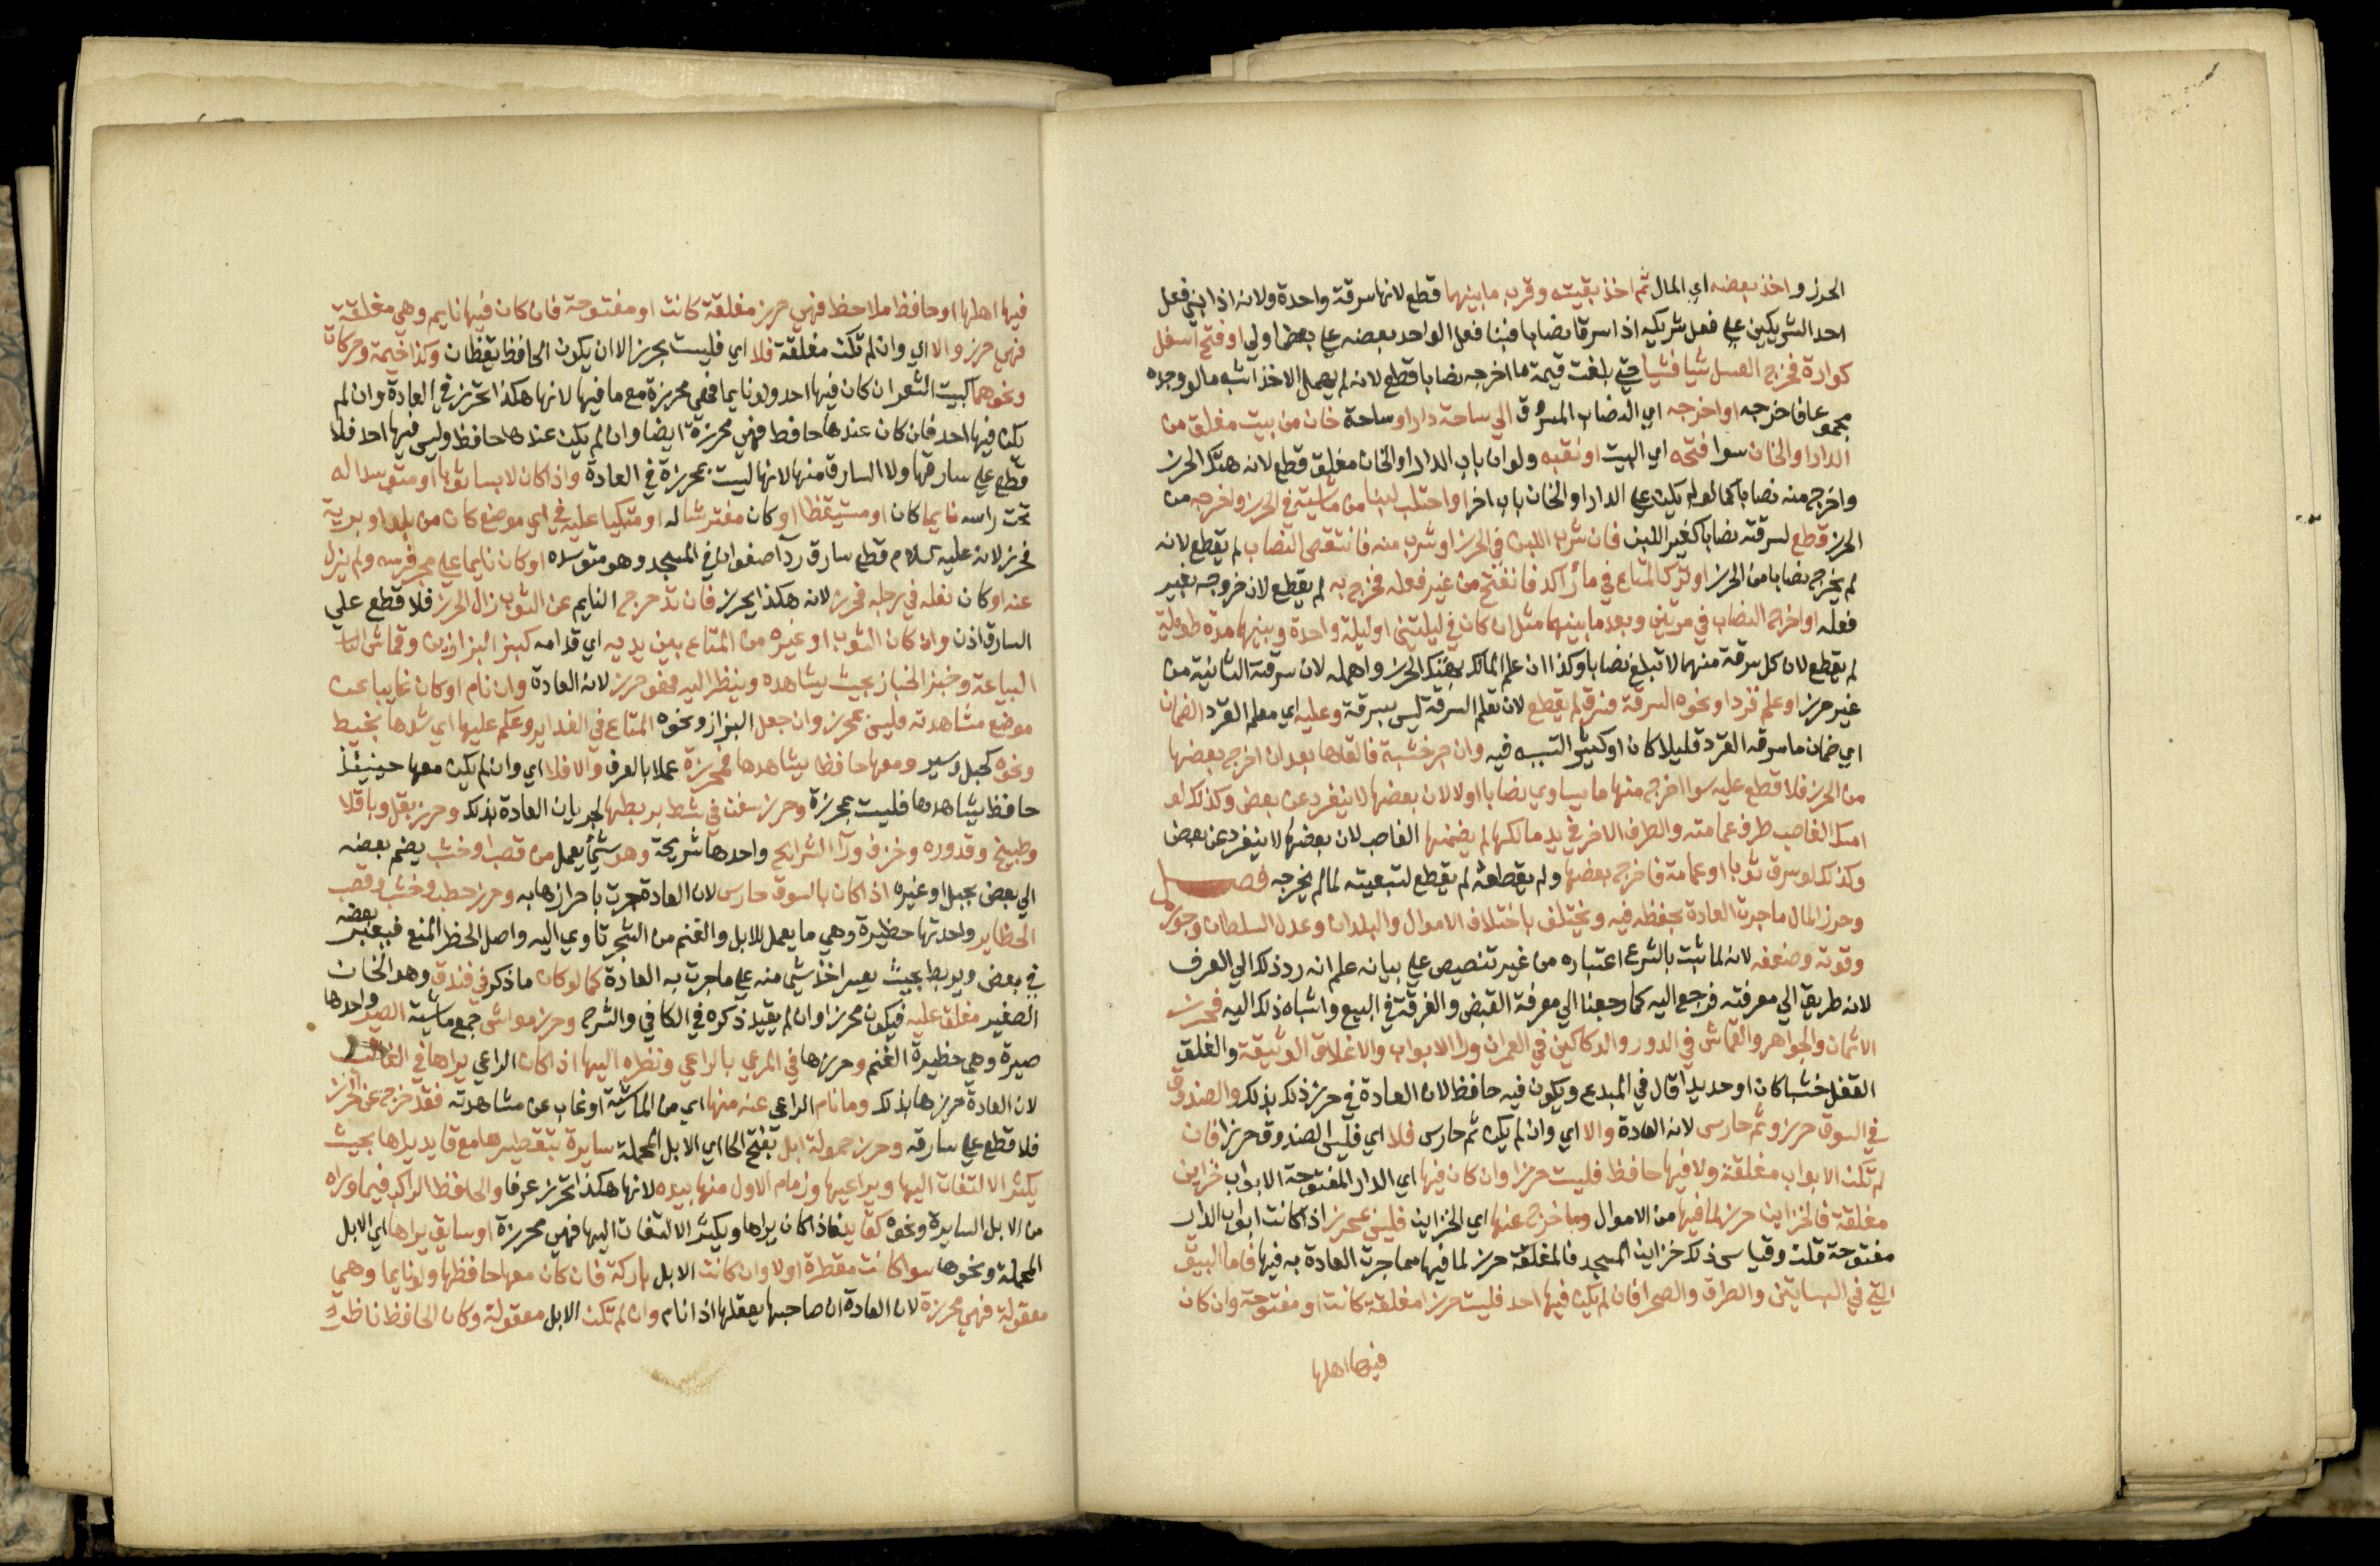 الحرز واخذ بعضه اي المال ثم اخذ بقيته وقرب ما بينهما قطع لانها سرقة واحدة ولانه اذا بني فعل
احد الشريكين علي فعل شريكه اذا سرقا نصابا فبنا فعل الواحد بعضه علي بعض اولي او فتح اسفل
كوارة فخرج العسل شيا فشيا حتي بلغت قيمة ما اخرجه نصابا قطع لانه لم يهمل الاخذ اشبه ما لو وجده
مجموعا فاخرجه او اخرجه اي النصاب المسروق الي ساحة دار او ساحة خان من بيت مغلق من
الدار او الخان سوا فتحه اي البيت او نقبه ولو ان باب الدار او الخان مغلق قطع لانه هتك الحرز
واخرج منه نصابا كما لو لم يكن علي الدار او الخان باب اخر او احتلب لبنا من ماشية في الحرز واخرجه من
الحرز قطع لسرقته نصابا كغير اللبن فان شرب اللبن في الحرز او شرب منه فانتقص النصاب لم يقطع لانه
لم يخرج نصابا من الحرز او ترك المتاع في ما راكد فانفتح من غير فعله فخرج به لم يقطع لان خروجه بغير
فعله او اخرج النصاب في مرتين وبعد ما بينهما مثل ان كان في ليلتين او ليلة واحدة وبينهما مدة طويلة
لم يقطع لان كل سرقة منهما لا تبلغ نصابا وكذا ان علم المالك بهتك الحرز واهمله لان سرقته الثانية من
غير حرز او علم قردا ونحوه السرقة فسرق لم يقطع لان تعلم السرقة ليس بسرقة وعليه اي معلم القرد الضمان
اي ضمان ما سرقه القرد قليلا كان او كثيرا لتسببه فيه وان جر خشبة فالقاها بعد ان اخرج بعضها
من الحرز فلا قطع عليه سوا اخرج منها ما يساوي نصابا او لا لان بعضها لا ينفرد عن بعض وكذلك لو
امسك الغاصب طرف عمامته والطرف الاخر في يد مالكها لم يضمنها الغاصب لان بعضها لا ينفرد عن بعض
وكذلك لو سرق ثوبا او عمامة فاخرج بعضها ولم يقطعه لم يقطع لتبعيته لما لم يخرجه فصل
وحرز المال ما جرت العادة بحفظه فيه ويختلف باختلاف الاموال والبلدان وعدل السلطان وجوره
وقوته وضعفه لانه لما ثبت بالشرع اعتباره من غير تنصيص علي بيانه علم انه رد ذلك الي العرف
لانه طريق الي معرفته فرجع اليه كما رجعنا الي معرفة القبض والفرقة في البيع واشباه ذلك اليه فحرز
الاثمان والجواهر والقماش في الدور والدكاكين في العمران ورا الابواب والاغلاق الوثيقة والغلق
القفل خشبا كان او حديدا قال في المبدع ويكون فيه حافظ لان العادة في حرز ذلك بذلك والصندوق
في السوق حرز وثم حارس لانه العادة والا اي وان لم يكن ثم حارس فلا اي فليس الصندوق حرزا فان
لم تكن الابواب مغلقة ولا فيها حافظ فليست حرزا وان كان فيها اي الدار المفتوحة الابواب خزاين
مغلقة فالخزاين حرز لما فيها من الاموال وما خرج عنها اي الخزاين فليس بمحرز اذا كانت ابواب الدار
مفتوحة قلت وقياس ذلك خزاين المسجد فالمغلقة حرز لما فيها مما جرت العادة به فيها فاما البيوت
التي في البساتين والطرق والصحرا فان لم يكن فيها احد فليست حرزا مغلقة كانت او مفتوحة وان كان
فيها اهلها
فيها اهلها او حافظ ملاحظ فهي حرز مغلقة كانت او مفتوحة فان كان فيها نايم وهي مغلقة
فهي حرز والا اي وان لم تكن مغلقة فلا اي فليست بحرز الا ان يكون الحافظ يقظان وكذا خيمة وخركاة
ونحوهما كبيت الشعر ان كان فيها احد ولو نايما فهي محرزة مع ما فيها لانها هكذا تحرز في العادة وان لم
يكن فيها احد فان كان عندها حافظ فهي محرزة ايضا وان لم يكن عندها حافظ وليس فيها احد فلا
قطع علي سارقها ولا السارق منها لانها ليست بمحرزة في العادة واذا كان لابسا ثوبا او متوسدا له
تحت راسه نايما كان او مستيقظا او كان مفترشا له او متكيا عليه في اي موضع كان من بلد او برية
فحرز لانه عليه السلام قطع سارق ردا صفوان في المسجد وهو متوسده او كان نايما علي مجر فرسه ولم يزل
عنه او كان نعله في رجله فحرز لانه هكذا يحرز فان تدحرج النايم عن الثوب زال الحرز فلا قطع علي
السارق اذن وان كان الثوب او غيره من المتاع بين يديه اي قدامه كبز البزازين وقماش
البياعة وخبز الخباز بحيث يشاهده وينظر اليه فهو حرز لانه العادة وان نام او كان غايبا عن
موضع مشاهدته فليس بمحرز وان جعل البزاز ونحوه المتاع في الغداير وعكم عليها اي شدها بخيط
ونحوه كحبل وسير ومعها حافظ يشاهدها فمحرزة عملا بالعرف والا فلا اي وان لم يكن معها حينيذ
حافظ يشاهدها فليست بمحرزة وحرز سفن في شط بربطها لجريان العادة بذلك وحرز بقل وباقلا
وطبيخ وقدوره وخزف ورا الشرايج واحدها شريجة وهو شي يعمل من قصب او خشب يضم بعضه
الي بعض بحبل او غيره اذا كان بالسوق حارس لان العادة جرت باحرازها به وحرز حطب وخشب وقصب
الحظاير واحدتها حظيرة وهي ما يعمل للابل والغنم من الشجر تاوي اليه واصل الحظر المنع فيعبر بعضه
في بعض ويربط بحيث يعسر اخذ شي منه علي ما جرت به العادة كما لو كان ما ذكر في فندق وهو الخان
الصغير مغلق عليه فيكون محرزا وان لم يقيد ذكره في الكافي والشرح وحرز مواشي جمع ماشية الصير واحدها
صيرة وهي حظيرة الغنم وحرزها في المرعي بالراعي ونظره اليها اذا كان الراعي يراها في الغالب
لان العادة حرزها بذلك وما نام الراعي عنه منها اي من الماشية او غاب عن مشاهدته فقد خرج عن الحرز
فلا قطع علي سارقه وحرز حمولة ابل بفتح الحا اي الابل المحملة سايرة بتقطيرها مع قايد يراها بحيث
يكثر الالتفات اليها ويراعيها وزمام الاول منها بيده لانها هكذا تحرز عرفا والحافظ الراكب فيما وراه
من الابل السايرة ونحوه كقايد فاذا كان يراها ويكثر الالتفات اليها فهي محرزة او سايق يراها اي الابل
المحملة ونحوها سوا كانت مقطرة او لا وان كانت الابل باركة فان كان معها حافظها ولو نايما وهي
معقولة فهي محرزة لان العادة ان صاحبها يعقلها اذا نام وان لم تكن الابل معقولة وكان الحافظ ناظرا